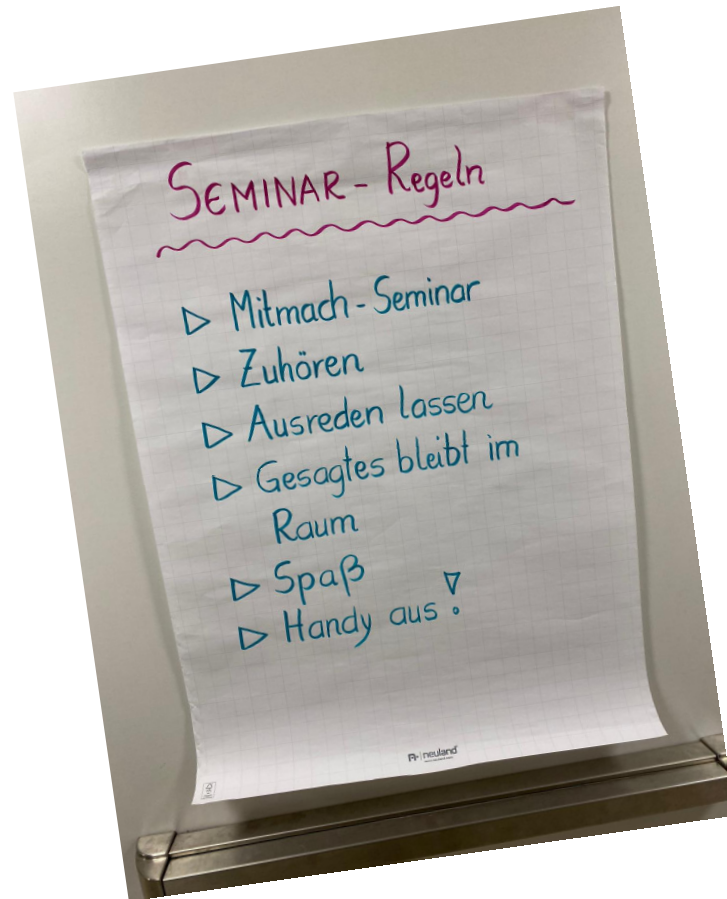 SEMINAR - Regeln
▷ Mitmach - Seminar
▷ Zuhören
▷ Ausreden lassen
▷ Gesagtes bleibt im
Raum
▷ Spaß
▷ Handy aus!
neuland